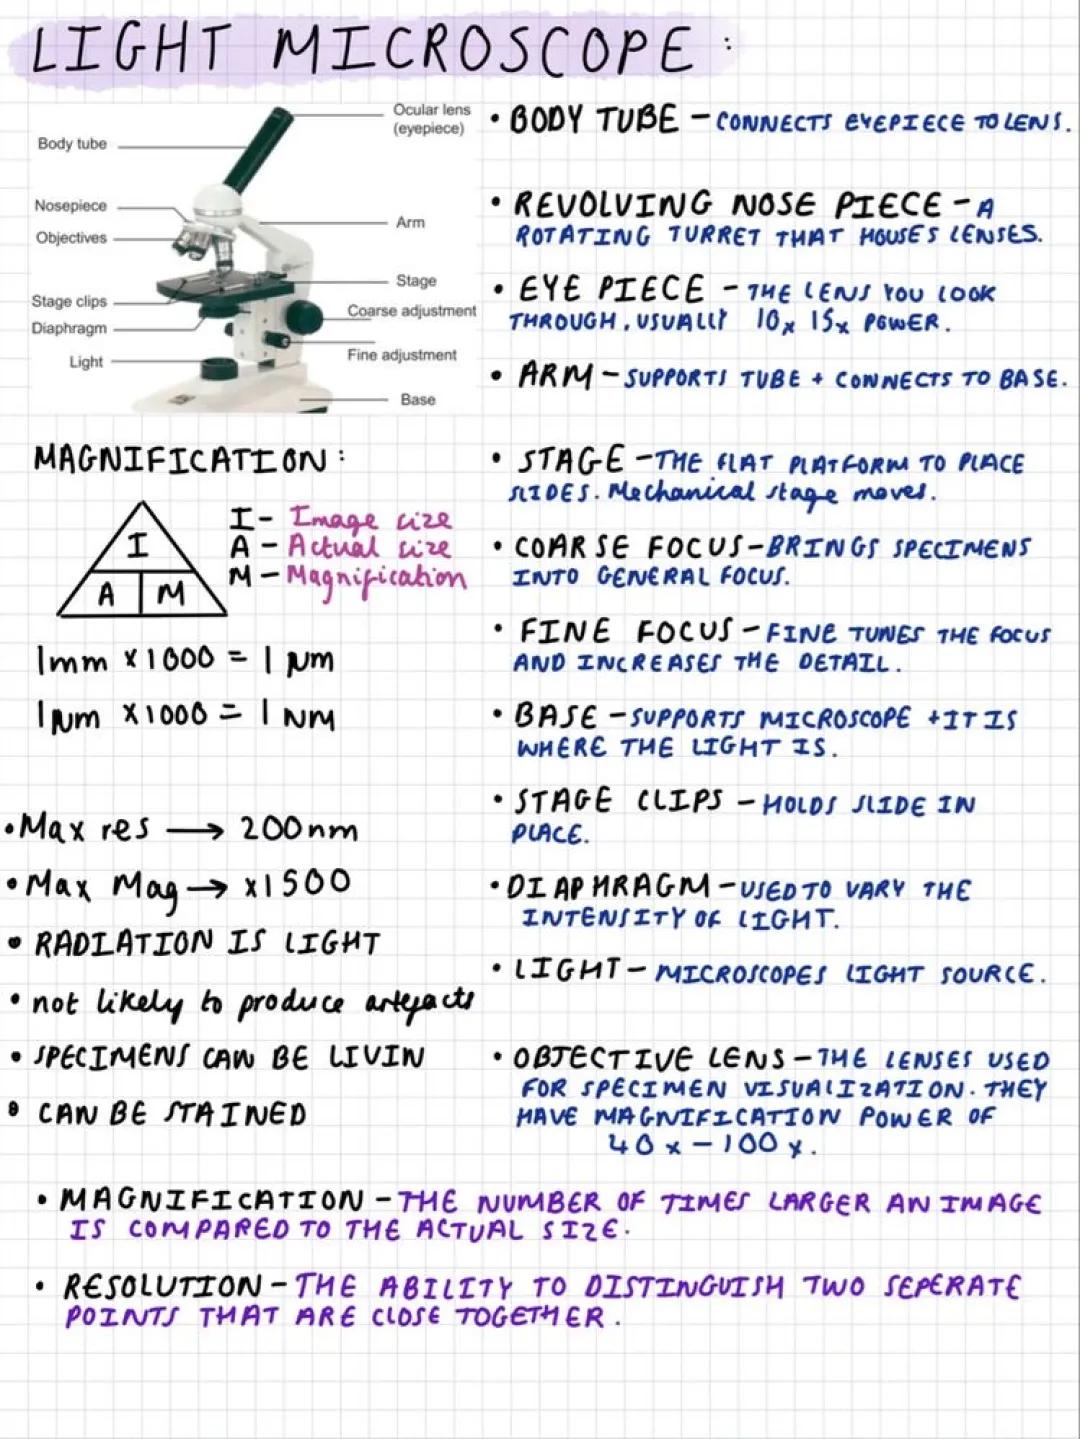 LIGHT MICROSCOPE:
Ocular lens
(eyepiece)
Body tube
Nosepiece
Arm
Objectives
Stage
Stage clips
Coarse adjustment
Diaphragm
Fine adjustment
Light
Base
• BODY TUBE – CONNECTS EYEPIECE TO LENS.
• REVOLVING NOSE PIECE – A
ROTATING TURRET THAT HOUSES LENSES.
• EYE PIECE – THE LENS YOU LOOK
THROUGH, USUALLY 10x 15x POWER.
• ARM – SUPPORTS TUBE + CONNECTS TO BASE.
MAGNIFICATION:
I
A M
I – Image size
A – Actual size
M – Magnification
1mm x1000 = 1 μm
1μm x1000 = 1 NM
• Max res → 200nm
• Max Mag → x1500
• RADIATION IS LIGHT
• not likely to produce artefacts
• SPECIMENS CAN BE LIVIN
• CAN BE STAINED
• STAGE – THE FLAT PLATFORM TO PLACE
SLIDES. Mechanical stage moves.
• COARSE FOCUS – BRINGS SPECIMENS
INTO GENERAL FOCUS.
• FINE FOCUS – FINE TUNES THE FOCUS
AND INCREASES THE DETAIL.
• BASE – SUPPORTS MICROSCOPE + IT IS
WHERE THE LIGHT IS.
• STAGE CLIPS – HOLDS SLIDE IN
PLACE.
• DIAPHRAGM – USED TO VARY THE
INTENSITY OF LIGHT.
• LIGHT – MICROSCOPES LIGHT SOURCE.
• OBJECTIVE LENS – THE LENSES USED
FOR SPECIMEN VISUALIZATION. THEY
HAVE MAGNIFICATION POWER OF
40x – 100x.
• MAGNIFICATION – THE NUMBER OF TIMES LARGER AN IMAGE
IS COMPARED TO THE ACTUAL SIZE.
• RESOLUTION – THE ABILITY TO DISTINGUISH TWO SEPERATE
POINTS THAT ARE CLOSE TOGETHER.